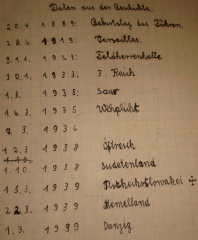 Daten aus der Geschichte.
20.4. 1889: Geburtstag des Führers.
28.6. 1919: Versailles.
9.11. 1923: Feldherrenhalle
30.1. 1933: 3. Reich
1.3. 1935: Saar
16.3. 1935 Wehrpflicht
7.3. 1936
12.3. 1938 Östreich
1.10.
1.10. 1938 Sudetenland
15.3. 1939 Tschechoslowakei
22.3. 1939 Memelland
1.9. 1939 Danzig.